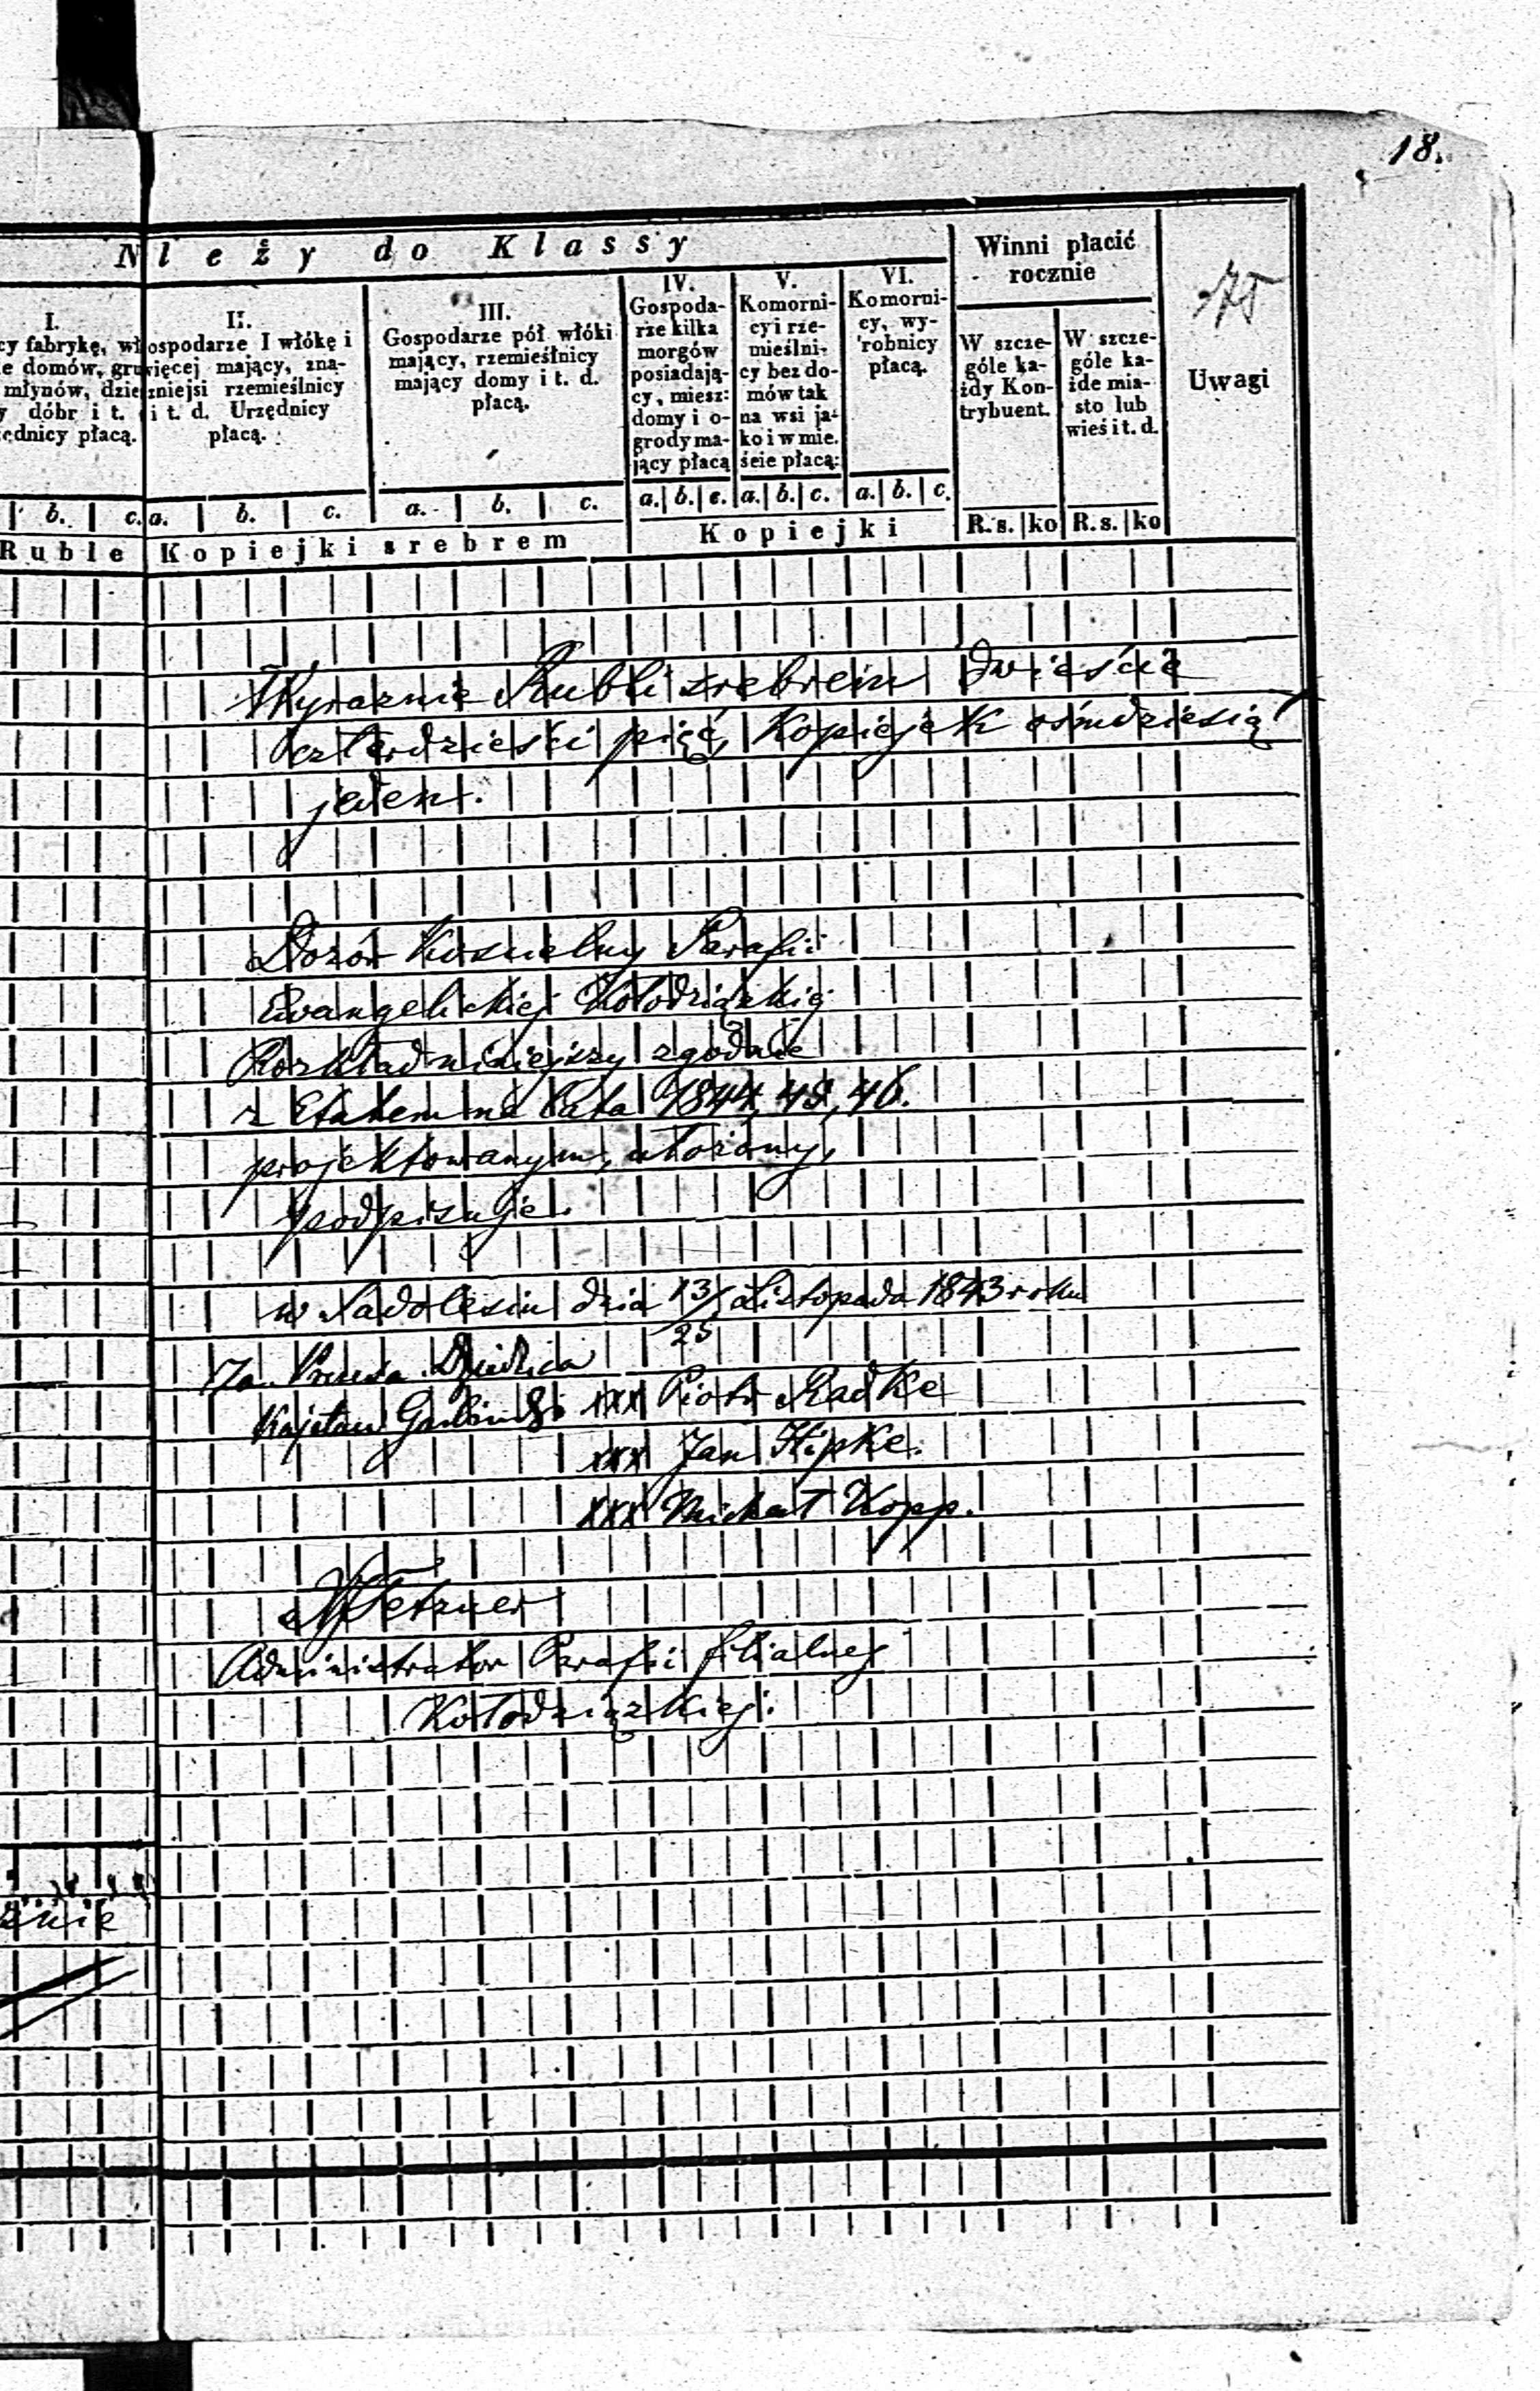 18.
N leży do Klassy
Winni płacić
rocznie
75
Uwagi
I.
cy fabrykę, wł
e domów, gru
młynów, dzie
y dóbr i t.
ędnicy płacą.
II.
ospodarze I włókę i
więcej mający, zna-
zniejsi rzemieślnicy
i t. d. Urzędnicy
płacą.
III.
Gospodarze pół włóki
mający, rzemieślnicy
mający domy i t. d.
płacą.
IV.
Gospoda-
rze kilka
morgów
posiadają-
cy, miesz:
domy i o-
grody ma-
jący płacą
V.
Komorni-
cy i rze-
mieślni-
cy bez do-
mów tak
na wsi ja-
ko i w mie.
ście płacą:
VI.
Komorni-
cy, wy-
robnicy
płacą.
W szcze-
góle ka-
żdy Kon-
trybuent.
W szcze-
góle ka-
żde mia-
sto lub
wieś i t. d.
b. c. a. b. c. a. b. c. a. b. c. a. b. c. a. b. c.
R. s. ko R. s. ko
Ruble Kopiejki srebrem Kopiejki
Wyraznie Rubli srebrem dwieście
czterdzieści pięć, Kopiejek ośmdziesiąt
jeden.
Dozór Kościelny Parafii
Ewangelickiej Kołodziązkiej
Rozkład niniejszy zgodnie
z Etatem na lata 1844, 45, 46.
projektowanym, ułożony,
podpisuje.
w Sadolesiu dnia 13/25 Listopada 1843 roku
Za Prezesa Dziedzica
Kajetan xxx Piotr Radke
xxx Jan Hipke.
xxx Michał Kopp.
Tetzner
Administrator Parafii filialnej
Kołodziązkiej.
znie